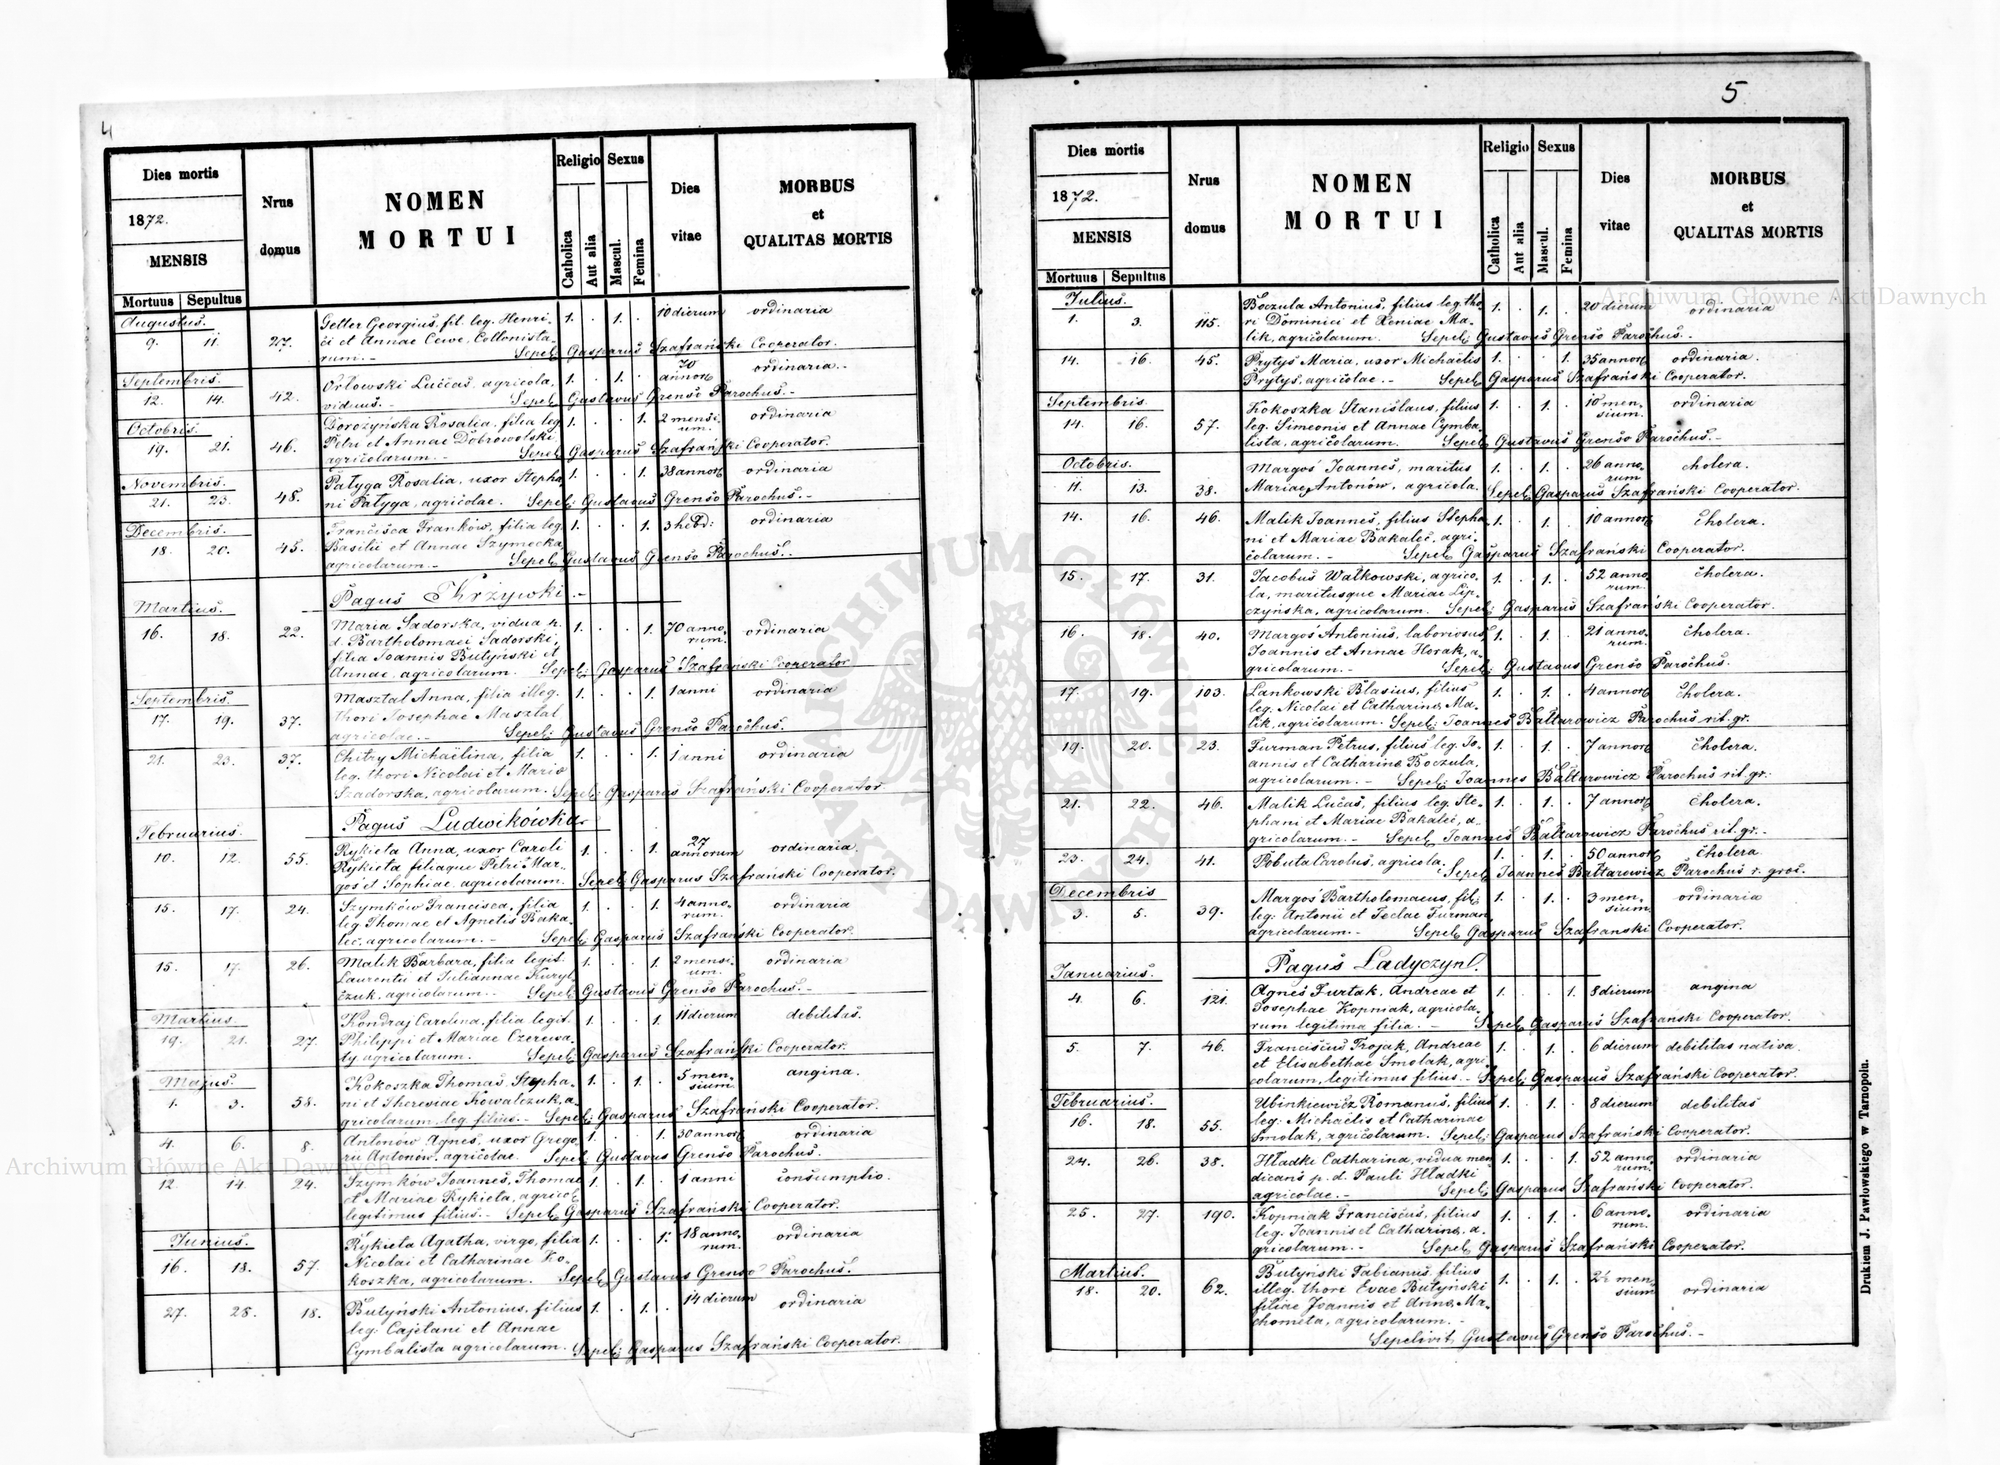 4
Dies mortis
1872.
MENSIS
Mortuus Sepultus
Nrus
domus
NOMEN
MORTUI
Religio
Catholica
Aut alia
Sexus
Mascul.
Femina
Dies
vitae
MORBUS
et
QUALITAS MORTIS
Augustus.
9. 11. 27. Geller Georgius, fil. leg. Henri- 1. . 1. . 10 dierum ordinaria
ci et Annae Cewe, Collonista-
rum. - Sepel. Gasparus Szafrański Cooperator.
Septembris.
12. 14. 42. Orłowski Luccas, agricola, 1. . 1. . 70 annor. ordinaria.
viduus. - Sepel. Gustavus Grenso Parochus. -
Octobris.
19. 21. 46. Dorożyńska Rosalia, filia leg. 1. . . 1. 2 mensi-
um. ordinaria
Petri et Annae Dobrowolski
agricolarum. - Sepel. Gasparus Szafrański Cooperator.
Novembris.
21. 23. 48. Patyga Rosalia, uxor Stepha- 1. . . 1. 38 annor. ordinaria
ni Patyga, agricolae. Sepel: Gustavus Grenso Parochus. -
Decembris.
18. 20. 45. Francisca Franków, filia leg. 1. . . 1. 3 ordinaria
Basilii et Annae Szymecka,
agricolarum. - Sepel. Gustavus Grenso Parochus. -
Pagus Krzywki. -
Martius.
16. 18. 22. Maria Sadorska, vidua p. 1. . . 1. 70 anno-
rum. ordinaria
d. Bartholomaei Sadorski,
filia Joannis Butyński et
Annae, agricolarum. Sepel: Gasparus Szafrański Cooperator
Septembris.
17. 19. 37. Masztal Anna, filia illeg. 1. . . 1. 1 anni ordinaria
thori Josephae Masztal
agricolae. - Sepel: Gustavus Grenso Parochus.
21. 23. 37. Chitry Michaëlina, filia 1. . . 1. 1 anni ordinaria
leg. thori Nicolai et Mariae
Szadorska, agricolarum. Sepel: Gasparus Szafrański Cooperator
Pagus Ludwikówka
Februarius.
10. 12. 55. Rykieta Anna, uxor Caroli 1. . . 1. 27
annorum ordinaria.
Rykieta filiaque Petri Mar-
gos et Sophiae agricolarum. Sepel. Gasparus Szafrański Cooperator.
15. 17. 24. Szymków Francisca, filia 1. . . 1. 4 anno-
rum. ordinaria
leg. Thomae et Agnetis Baka-
lec, agricolarum. - Sepel. Gasparus Szafrański Cooperator.
15. 17. 26. Malik Barbara, filia legit. 1. . . 1. 2 mensi-
um. ordinaria
Laurentii et Juliannae Kuryl-
czuk, agricolarum. - Sepel. Gustavus Grenso Parochus. -
Martius.
19. 21. 27. Kondraj Carolina, filia legit. 1. . . 1. 11 dierum debilitas.
Philippi et Mariae Czerewa-
ty agricolarum. Sepel: Gasparus Szafrański Cooperator.
Majus.
1. 3. 58. Kokoszka Thomas, Stepha- 1. . 1. . 5 men-
sium. angina.
ni et Theresiae Kowalczuk, a-
gricolarum, leg. filius. - Sepel: Gasparus Szafrański Cooperator.
4. 6. 8. Antonow Agnes, uxor Grego- 1. . . 1. 30 annor. ordinaria
rii Antonów, agricolae. Sepel. Gustavus Grenso Parochus.
12. 14. 24. Szymków Joannes, Thomae 1. . 1. . 1 anni consumptio.
et Mariae Rykieta, agricol.
legitimus filius. - Sepel. Gasparus Szafrański Cooperator.
Junius.
16. 18. 57. Rykieta Agatha, virgo, filia 1. . . 1. 18 anno-
rum. ordinaria
Nicolai et Catharinae Ko-
koszka, agricolarum. Sepel. Gustavus Grenso Parochus.
27. 28. 18. Butyński Antonius, filius 1. . 1. . 14 dierum ordinaria
leg: Cajetani et Annae
Cymbalista agricolarum. Sepel: Gasparus Szafrański Cooperator.
5
Dies mortis
1872.
MENSIS
Mortuus Sepultus
Nrus
domus
NOMEN
MORTUI
Religio
Catholica
Aut alia
Sexus
Mascul.
Femina
Dies
vitae
MORBUS
et
QUALITAS MORTIS
Julius.
1. 3. 115. Boczula Antonius, filius leg. tho- 1. . 1. . 20 dierum ordinaria
ri Dominici et Xeniae Ma-
lik, agricolarum. Sepel: Gustavus Grenso Parochus. -
14. 16. 45. Prytys Maria, uxor Michaelis 1. . . 1. 35 annor. ordinaria.
Prytys, agricolae. - Sepel. Gasparus Szafrański Cooperator.
Septembris.
14. 16. 57. Kokoszka Stanislaus, filius 1. . 1. . 10 men-
sium. ordinaria
leg. Simeonis et Annae Cymba-
lista, agricolarum. Sepel. Gustavus Grenso Parochus. -
Octobris.
11. 13. 38. Margos Joannes, maritus 1. . 1. . 26 anno-
rum cholera.
Mariae Antonów, agricola. Sepel. Gasparus Szafrański Cooperator.
14. 16. 46. Malik Joannes, filius Stepha- 1. . 1. . 10 annor. cholera.
ni et Mariae Bakalec, agri-
colarum. - Sepel. Gasparus Szafrański Cooperator.
15. 17. 31. Jacobus Wałkowski, agrico- 1. . 1. . 52 anno-
rum. cholera.
la, maritusque Mariae Lip-
czyńska, agricolarum. Sepel: Gasparus Szafrański Cooperator.
16. 18. 40. Margos Antonius, laboriosus, 1. . 1. . 21 anno-
rum. cholera.
Joannis et Annae Horak, a-
gricolarum. - Sepel: Gustavus Grenso Parochus.
17. 19. 103. Lankowski Blasius, filius 1. . 1. . 4 annor. cholera.
leg. Nicolai et Catharinae Ma-
lik, agricolarum. Sepel: Joannes Bałtarowicz Parochus rit. gr.
19. 20. 23. Furman Petrus, filius leg. Jo- 1. . 1. . 7 annor. cholera.
annis et Catharinae Boczula,
agricolarum. - Sepel: Joannes Bałtarowicz Parochus rit. gr.
21. 22. 46. Malik Lucas, filius leg. Ste- 1. . 1. . 7 annor. cholera.
phani et Mariae Bakalec, a-
gricolarum. - Sepel. Joannes Bałtarowicz Parochus rit. gr. -
23. 24. 41. Pobuta Carolus, agricola. 1. . 1. . 50 annor. cholera
Sepel. Joannes Bałtarowicz Parochus r. groe.
Decembris
3. 5. 39. Margos Bartholomaeus, fil. 1. . 1. . 3 men-
sium. ordinaria
leg. Antonii et Teclae Furman
agricolarum. - Sepel. Gasparus Szafranski Cooperator.
Pagus Ladyczyn.
Januarius.
4. 6. 121. Agnes Furtak, Andreae et 1. . . 1. 8 dierum angina
Josephae Kopniak, agricola-
rum legitima filia. - Sepel. Gasparus Szafrański Cooperator.
5. 7. 46. Franciscus Trojak, Andreae 1. . 1. . 6 dierum debilitas nativa.
et Elisabethae Smolak, agri-
colarum, legitimus filius. - Sepel: Gasparus Szafrański Cooperator.
Februarius.
16. 18. 55. Ubinkiewicz Romanus, filius 1. . 1. . 8 dierum debilitas
leg: Michaelis et Catharinae
Smolak, agricolarum. Sepel: Gasparus Szafrański Cooperator.
24. 26. 38. Hładki Catharina, vidua men- 1. . . 1. 52 anno-
rum. ordinaria
dicans p. d. Pauli Hładki
agricolae. - Sepel. Gasparus Szafrański Cooperator.
25. 27. 190. Kopniak Franciscus, filius 1. . 1. . 6 anno-
rum. ordinaria
leg. Joannis et Catharinae, a-
gricolarum. - Sepel. Gasparus Szafrański Cooperator.
Martius.
18. 20. 62. Butyński Fabianus, filius 1. . 1. . 2½ men-
sium ordinaria
illeg. thori Evae Butyński
filiae Joannis et Annae Ma-
chometa, agricolarum. -
Sepelivit Gustavus Grenso Parochus. -
Drukiem J. Pawłowskiego w Tarnopolu.
Archiwum Główne Akt Dawnych
Archiwum Główne Akt Dawnych
ARCHIWUM GŁÓWNE
AKT DAWNYCH